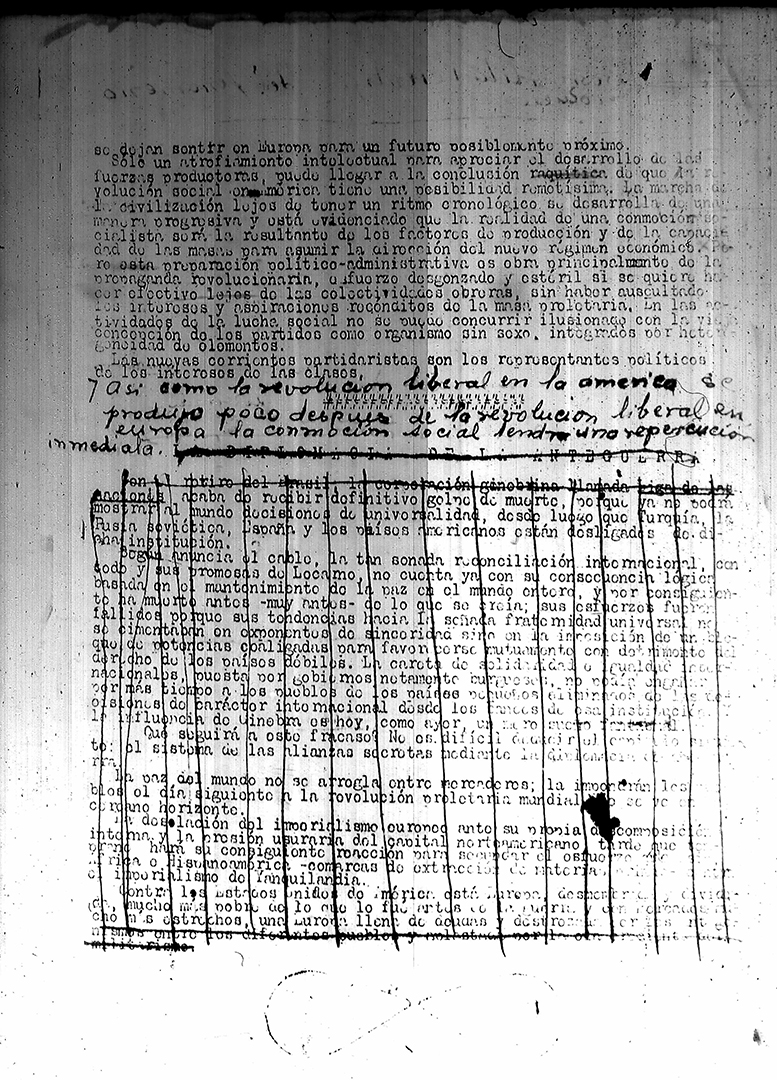 se dejan sentir en Europa para un futuro posiblemente próximo.
Sólo un atrofiamiento intelectual para apreciar el desarrollo de las
fuerzas productoras, puede llegar a la conclución raquítica de que la re-
volución social en américa tiene una posibilidad remotísima. La marcha de
la civilización lejos de tener un ritmo cronológico se desarrolla de una
manera progresiva y está evidenciado que la realidad de una conmoción so-
cialista será la resultante de los factores de producción y de la capaci-
dad de las masas para asumir la dirección del nuevo régimen económico. Pe-
ro esta preparación político-administrativa es obra principalmente de la
propaganda revolucionaria, esfuerzo desgonzado y estéril si se quiere ha-
cer efectivo lejos de las colectividades obreras, sin haber auscultado
los intereses y aspiraciones recónditos de la masa proletaria. En las ac-
tividades de la lucha social no se puede concurrir ilusionado con la vieja
concepción de los partidos como organismo sin sexo, integrados por hetero-
geneidad de elementos.
Las nuevas corrientes partidaristas son los representantes políticos
de los intereses de las clases,
7 Asi como la revolucion liberal en la america se
produjo poco despues de la revolucion liberal en
europa la conmoción social tendra una repercución
inmediata. LA DIPLOMACIA DE LA ANTEGUERRA
Con el retiro del Brasil, la corporación ginebrina llamada Liga de las
Naciones acaba de recibir definitivo golpe de muerte, porque ya no podrá
mostrar al mundo decisiones de universalidad, desde luego que Turquía, la
Rusia soviética, España y los países americanos están desligados de di-
cha institución.
Según anuncia el cable, la tan sonada reconciliación internacional, con
todo y sus promesas de Locarno, no cuenta ya con su consecuencia lógica
basada en el mantenimiento de la paz en el mundo entero, y por consiguien-
te ha muerto antes -muy antes- de lo que se creía; sus esfuerzos fueron
fallidos porque sus tendencias hacia la soñada fraternidad universal no
se cimentaban en exponentes de sinceridad sino en la imposición de un blo-
que de potencias coaligadas para favorcerse mutuamente con detrimento del
derecho de los países débiles. La careta de solidaridad e igualdad inter-
nacionales, puesta por gobiernos netamente burgueses, no podía engañar
por más tiempo a los pueblos de los países pequeños eliminados de las de-
cisiones de carácter internacional desde los trances de esa institución.
la influencia de Ginebra es hoy, como ayer, un mero
Qué seguirá a este fracaso? No es difícil deducir el
to: el sistema de las alianzas secretas mediante la diplomacia de
rra.
La paz del mundo no se arregla entre mercaderes; la impondrán los
blos el día siguiente a la revolución proletaria mundial no se ve en
cercano horizonte.
La desolación del imperialismo europeo ante su propia descomposición
interna y la presión usuraria del capital norteamericano, tarde que
prano hará su consiguiente reacción para secundar el esfuerzo
rica o hispanoamérica -comarcas de extracción de materias
el imperialismo de Yanquilandia.
Contra los Estados Unidos de América está Europa,
da, mucho más pobre de lo que lo fue antes de la guerra y con mercados mu-
cho más estrechos, una Europa llena de deudas y
nismos entre los diferentes pueblos y
militarismo.